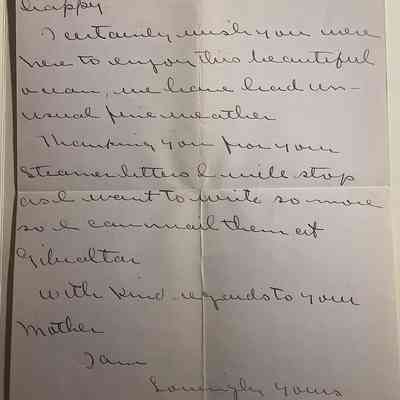 happy
I certainly wish you were
here to enjoy this beautiful
ocean, we have had un-
usual fine weather
Thanking you for your
Steamer letters I will stop
as I want to write so more
so I can mail them at
Gibraltar
with kind regards to your
Mother
I am
Lovingly yours